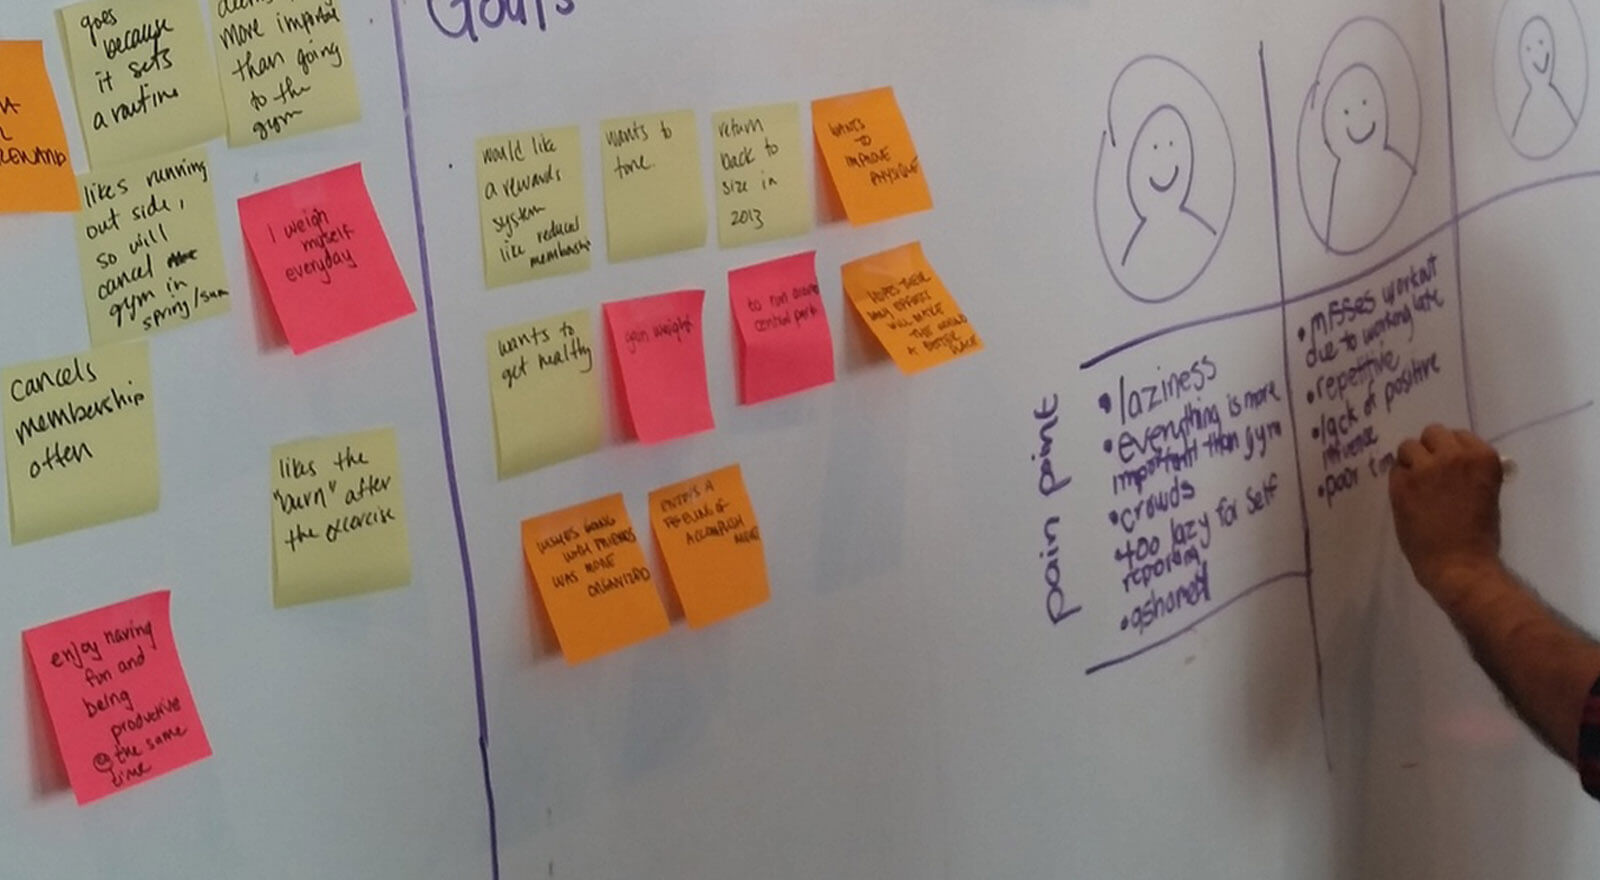 goes
because
it sets
a routine
more important
than going
to the
gym
REWARD
likes running
out side,
so will
cancel
gym in
spring/sum
I weigh
myself
everyday
cancels
membership
often
likes the
"burn" after
the exercise
enjoy having
fun and
being
productive
@ the same
time
Goals
would like
a rewards
system
like reduced
membership
wants to
tone
return
back to
size in
2013
WANTS
TO
IMPROVE
PHYSIQUE
wants to
get healthy
gain weight
to run
central park
HOPES THEIR
EFFORTS
WILL MAKE
THE WORLD
A BETTER
PLACE
WISHES GOING
WITH FRIENDS
WAS MORE
ORGANIZED
ENJOYS A
FEELING OF
ACCOMPLISH
MENT
pain point
• laziness
• everything is more
important than gym
• crowds
too lazy for self
reporting
• ashamed
• misses workout
due to working late
• repetitive
• lack of positive
• poor